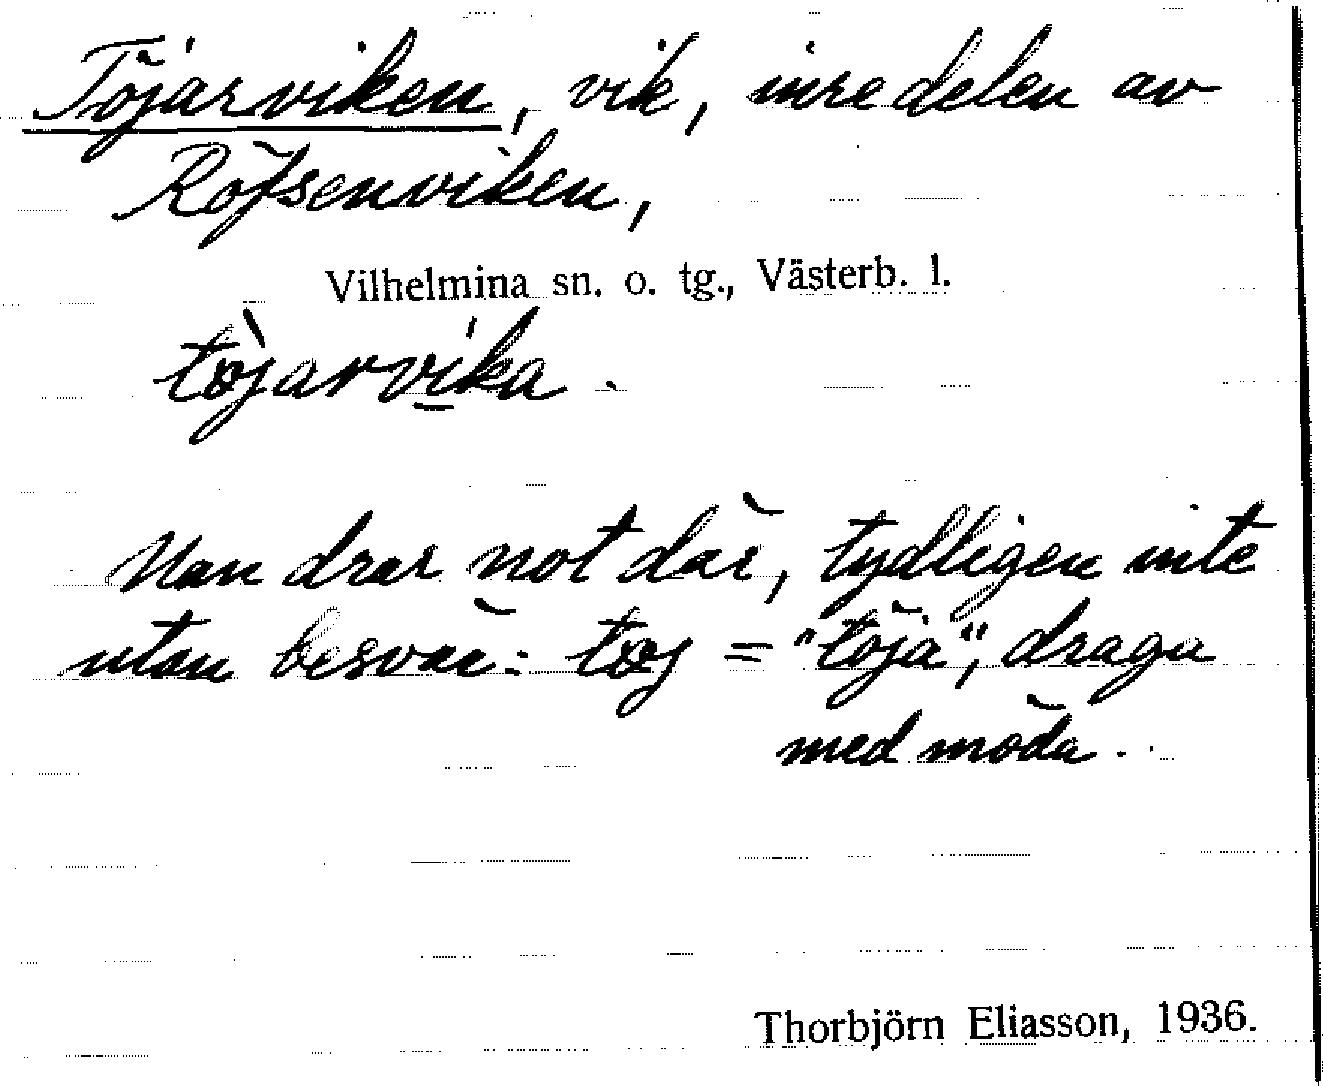 Töjarviken, vik, inre delen av
Röfsenviken,
Vilhelmina sn. o. tg., Västerb. l.
tœ̀jarvi̱ka.
Man drar not där, tydligen inte
utan besvär: tœj = "töja", draga
med möda.
Thorbjörn Eliasson, 1936.